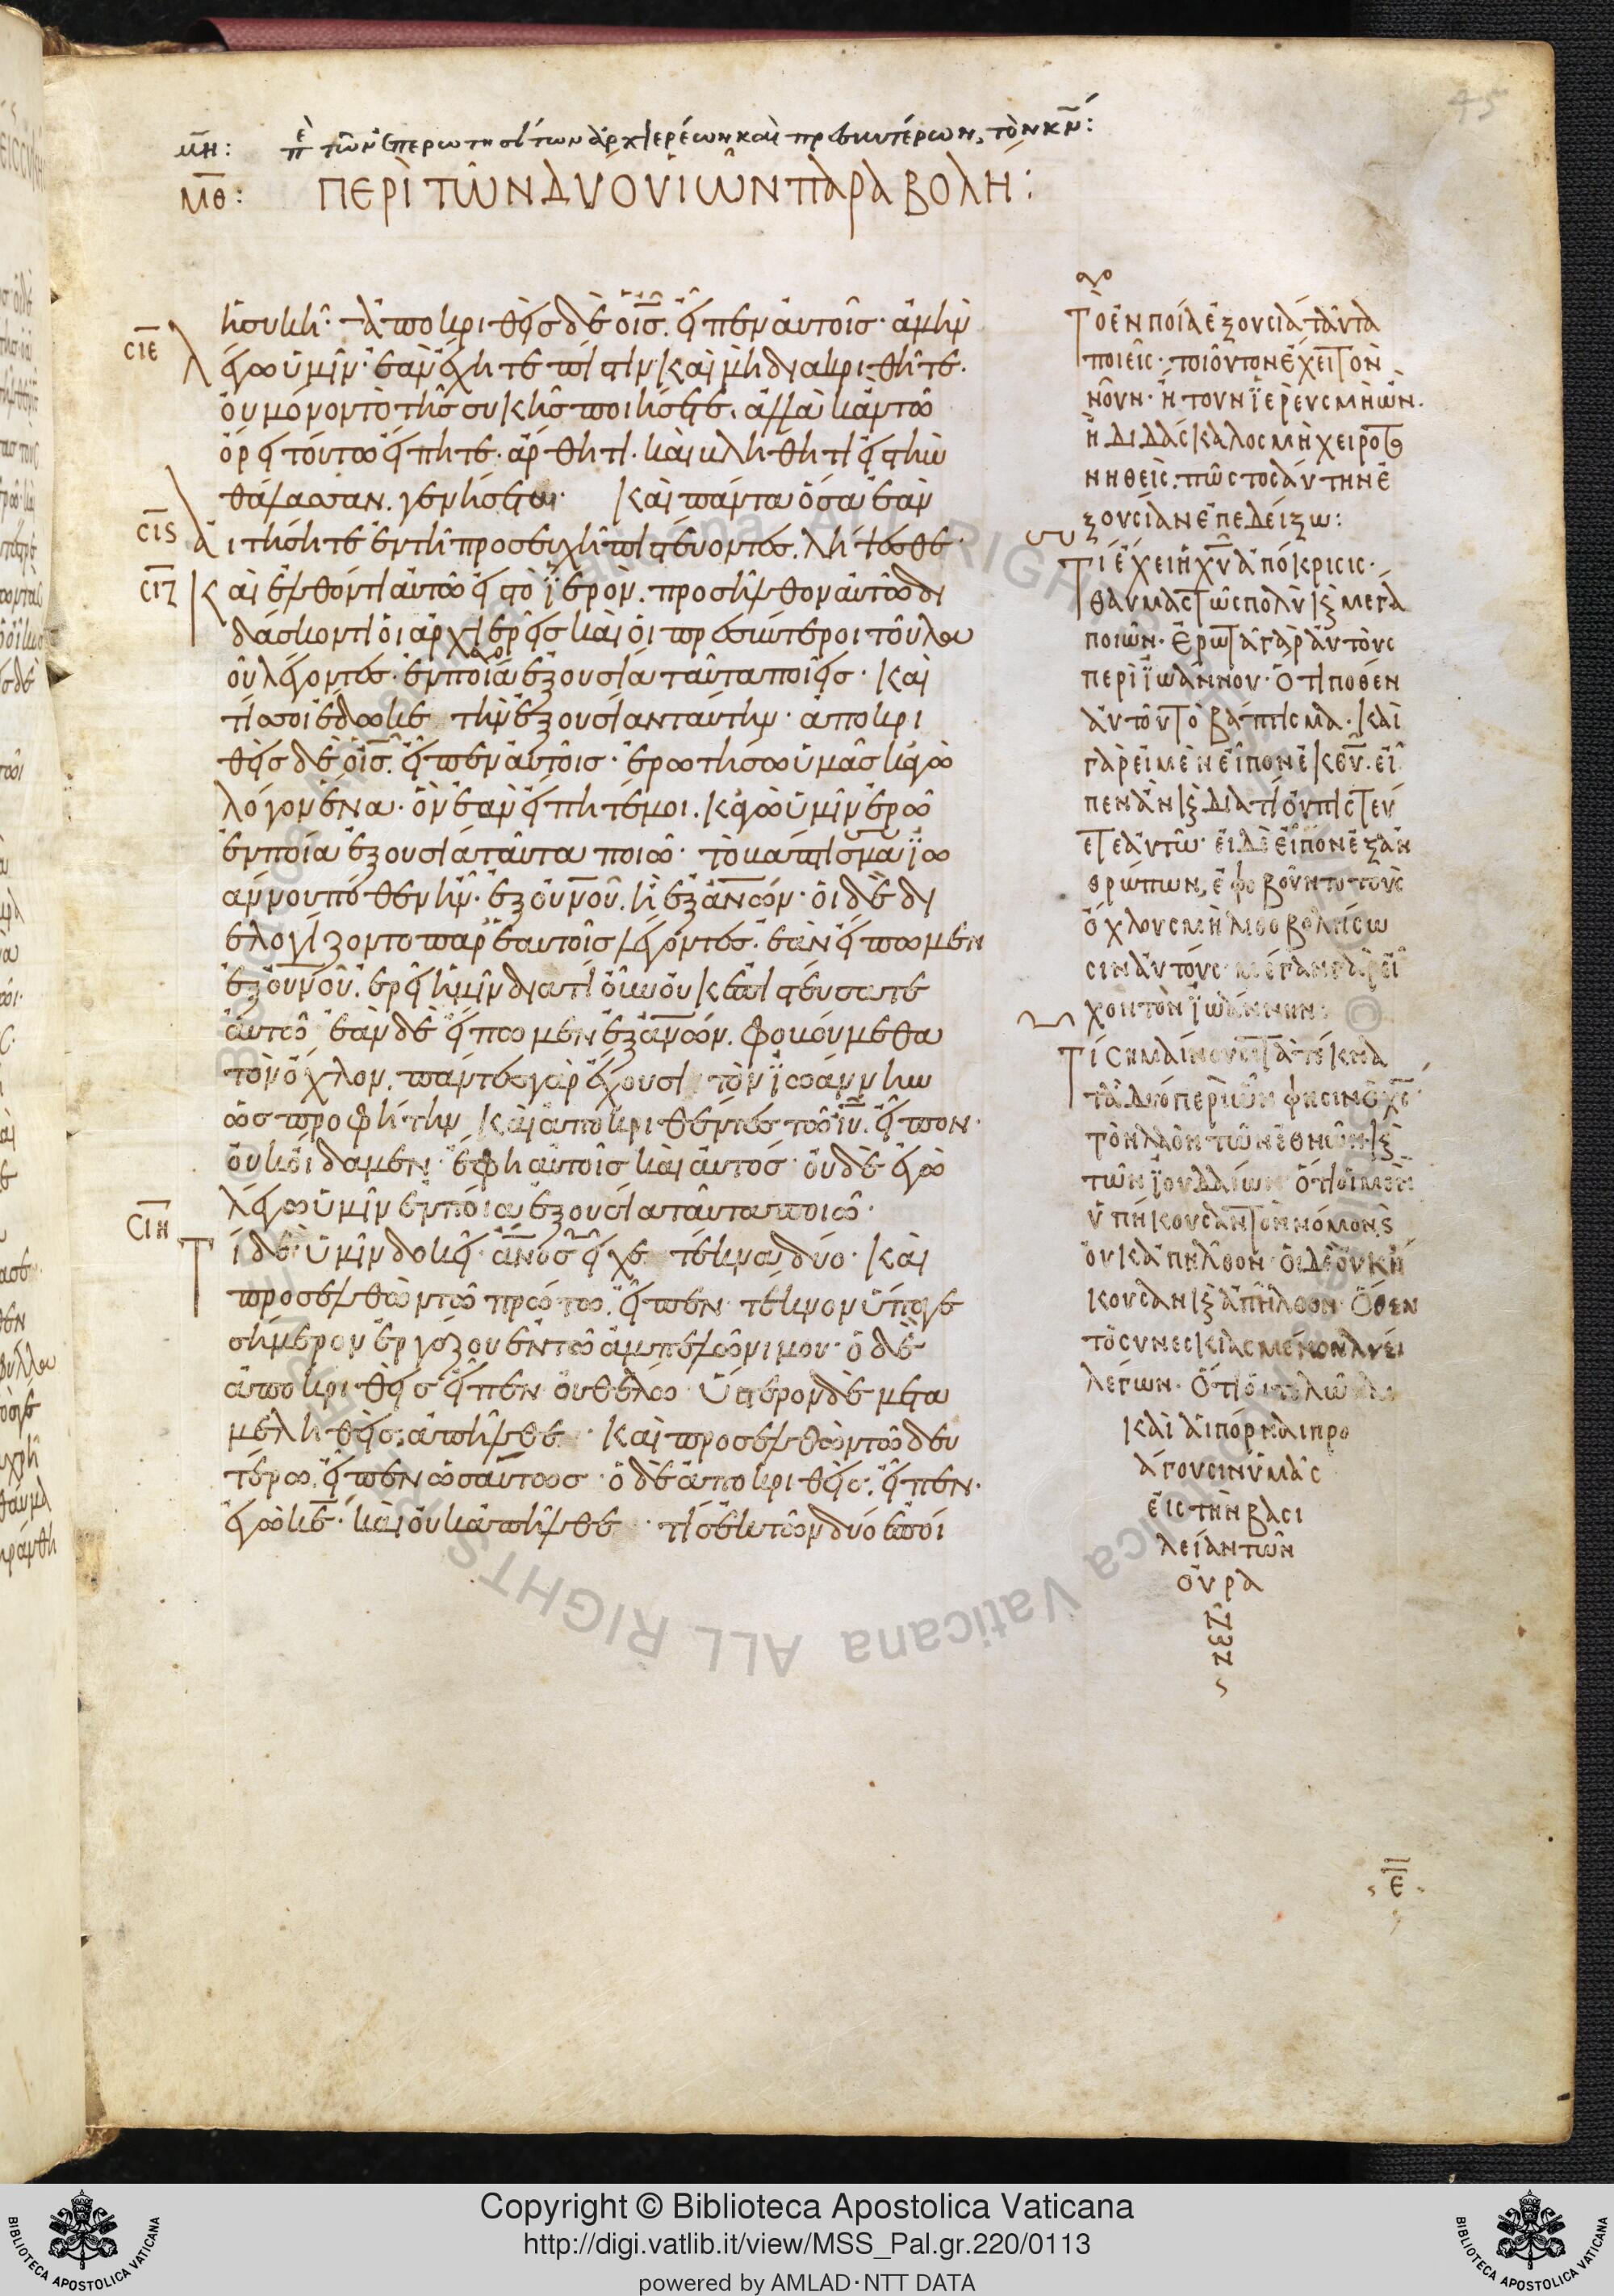 45
μη: πε τῶν ἐπερωτησάντων ἀρχιερέων καὶ πρεσβυτέρων, τὸν κν:
μθ: ΠΕΡῚ ΤῶΝ ΔΎΟ ΥἱῶΝ ΠΑΡΑΒΟΛΉ:
ἡ συκῆ· ἀποκριθεὶς δὲ ὁ ις. εἶπεν αὐτοῖς· ἀμὴν
σιε λέγω ὑμῖν· ἐὰν ἔχητε πίστιν, καὶ μὴ διακριθῆτε.
οὐ μόνον τὸ τῆς συκῆς ποιήσετε. ἀλλὰ κἂν τῶ
ὄρει τούτω εἴπητε. ἄρθητι. καὶ βλήθητι εἰς τὴν
θάλασσαν. γενήσεται· καὶ πάντα ὅσα ἐὰν
σις αἰτήσητε ἐν τῆ προσευχῆ πιστεύοντες. λήψεσθε·
σιζ καὶ ἐλθόντι αὐτῶ εἰς τὸ ϊερὸν. προσῆλθον αὐτῶ δι
δάσκοντι οἱ ἀρχιερεῖς καὶ οἱ πρεσβύτεροι τοῦ λα
οῦ λέγοντες· ἐν ποία ἐξουσία ταῦτα ποιεῖς· καὶ
τίς σοι ἔδωκε τὴν ἐξουσίαν ταύτην· ἀποκρι
θεὶς δὲ ὁ ις. εἶπεν αὐτοῖς· ἐρωτήσω ὑμᾶς κἀγὼ
λόγον ἕνα· ὃν ἐὰν εἴπητέ μοι. κἀγὼ ὑμῖν ἐρῶ
ἐν ποία ἐξουσία ταῦτα ποιῶ· τὸ βάπτισμα ϊω
άννου πόθεν ἦν· ἐξ οὐνοῦ. ἢ ἐξ ανων· οἱ δὲ δι
ελογίζοντο παρ' ἑαυτοῖς λέγοντες· ἐὰν εἴπωμεν
ἐξ οὐνοῦ. ἐρεῖ ἡμῖν διατί οὖν οὐκ ἐπιστεύσατε
αὐτῶ ἐὰν δὲ εἴπωμεν ἐξ ανων. φοβούμεθα
τὸν ὄχλον. πάντες γὰρ ἔχουσι τὸν ϊωάννην
ὡς προφήτην καὶ ἀποκριθέντες τῶ ιυ. εἶπον·
οὐκ οἴδαμεν· ἔφη αὐτοῖς καὶ αὐτός· οὐδὲ ἐγὼ
λέγω ὑμῖν ἐν ποία ἐξουσία ταῦτα ποιῶ·
σιη τί δὲ ὑμῖν δοκεῖ· ανος εἶχε τέκνα δύο· καὶ
προσελθὼν τῶ πρώτω. εἶπεν· τέκνον ὕπαγε
σήμερον ἐργάζου ἐν τῶ ἀμπελῶνι μου· ὁ δὲ
ἀποκριθεὶς εἶπεν οὐ θέλω ὕστερον δὲ μετα
μεληθεὶς, ἀπῆλθε· καὶ προσελθὼν τῶ δευ
τέρω. εἶπεν ὡσαύτως· ὁ δὲ ἀποκριθεὶς· εἶπεν·
ἐγὼ κε· καὶ οὐκ ἀπῆλθε· τίς ἐκ τῶν δύο ἐποί
Τὸ ἐν ποία ἐξουσία ταῦτα
ποιεῖς· τοιοῦτον ἔχει τὸν
νοῦν· ἤτουν ϊερεὺς μὴ ὢν.
ἢ διδάσκαλος μὴ χειροτο
νηθείς. πῶς τοσαύτην ἐ
ξουσίαν ἐπεδείξω:
Τί ἔχει ἡ χυ ἀπόκρισις·
θαυμαστῶς πολὺ κ μέγα
ποιῶν· Ἐρωτᾶ γὰρ αὐτοὺς
περὶ ϊωάννου· Ὅτι πόθεν
αὐτοῦ τὸ βάπτισμα· καὶ
γὰρ εἰ μὲν εἶπον ἐκ θυ. εἶ
πεν ἂν κ διατί οὐ πιστεύ
ετε αὐτῶ· εἰ δὲ εἶπον ἐξ αν
θρώπων, ἐφοβοῦντο τοὺς
ὄχλους μὴ λιθοβολήσω
σιν αὐτούς· μέγαν γὰρ εἶ
χον τὸν ϊωάννην:
Τί σημαίνουσι τὰ τέκνα
τὰ δύο περὶ ὧν φησιν ὁ χς·
τὸν λαὸν τῶν ἐθνῶν κ
τῶν ϊουδαίων· ὅτι οἱ μὲν
ὑπήκουσαν τὸν νόμον κ
οὐκ ἀπῆλθον· οἱ δὲ οὐκ ἤ
κουσαν κ ἀπῆλθον· Ὅθεν
τὸ συνεσκιασμένον λύει
λέγων· Ὅτι οἱ τελῶναι
καὶ αἱ πόρναι προ
άγουσιν ὑμᾶς
εἰς τὴν βασι
λείαν τῶν
οὐρα
νῶν
ε
Copyright © Biblioteca Apostolica Vaticana
http://digi.vatlib.it/view/MSS_Pal.gr.220/0113
powered by AMLAD·NTT DATA
BIBLIOTECA APOSTOLICA VATICANA
BIBLIOTECA APOSTOLICA VATICANA